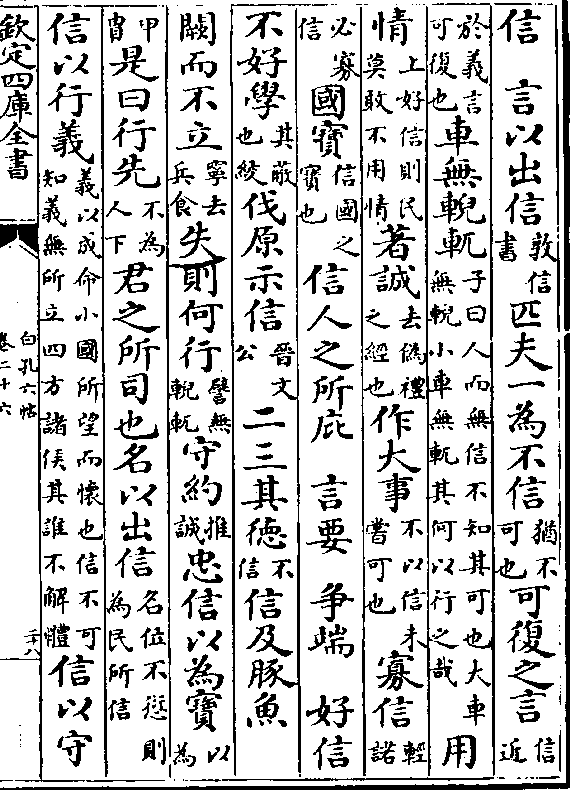 信　言以出信敦信書匹夫一為不信猶不可也可復之言信近
於義言可復也車無輗軏子曰人而無信不知其可也大車無輗小車無軏其何以行之哉用
情上好信則民莫敢不用情著誠去偽禮之經也作大事不以信未嘗可也寡信輕諾
必寡信國寳信國之寳也信人之所庇　言要　爭端　好信
不好學其蔽也絞伐原示信晉文公二三其德不信信及豚魚
闕而不立寧去兵食失則何行譬無輗軏守約推誠忠信以為寶以為
甲胄是曰行先不為人下君之所司也名以出信名位不愆則為民所信
信以行義義以成命小國所望而懷也信不可知義無所立四方諸侯其誰不解體信以守
欽定四庫全書
白孔六帖
卷二十六
二十八